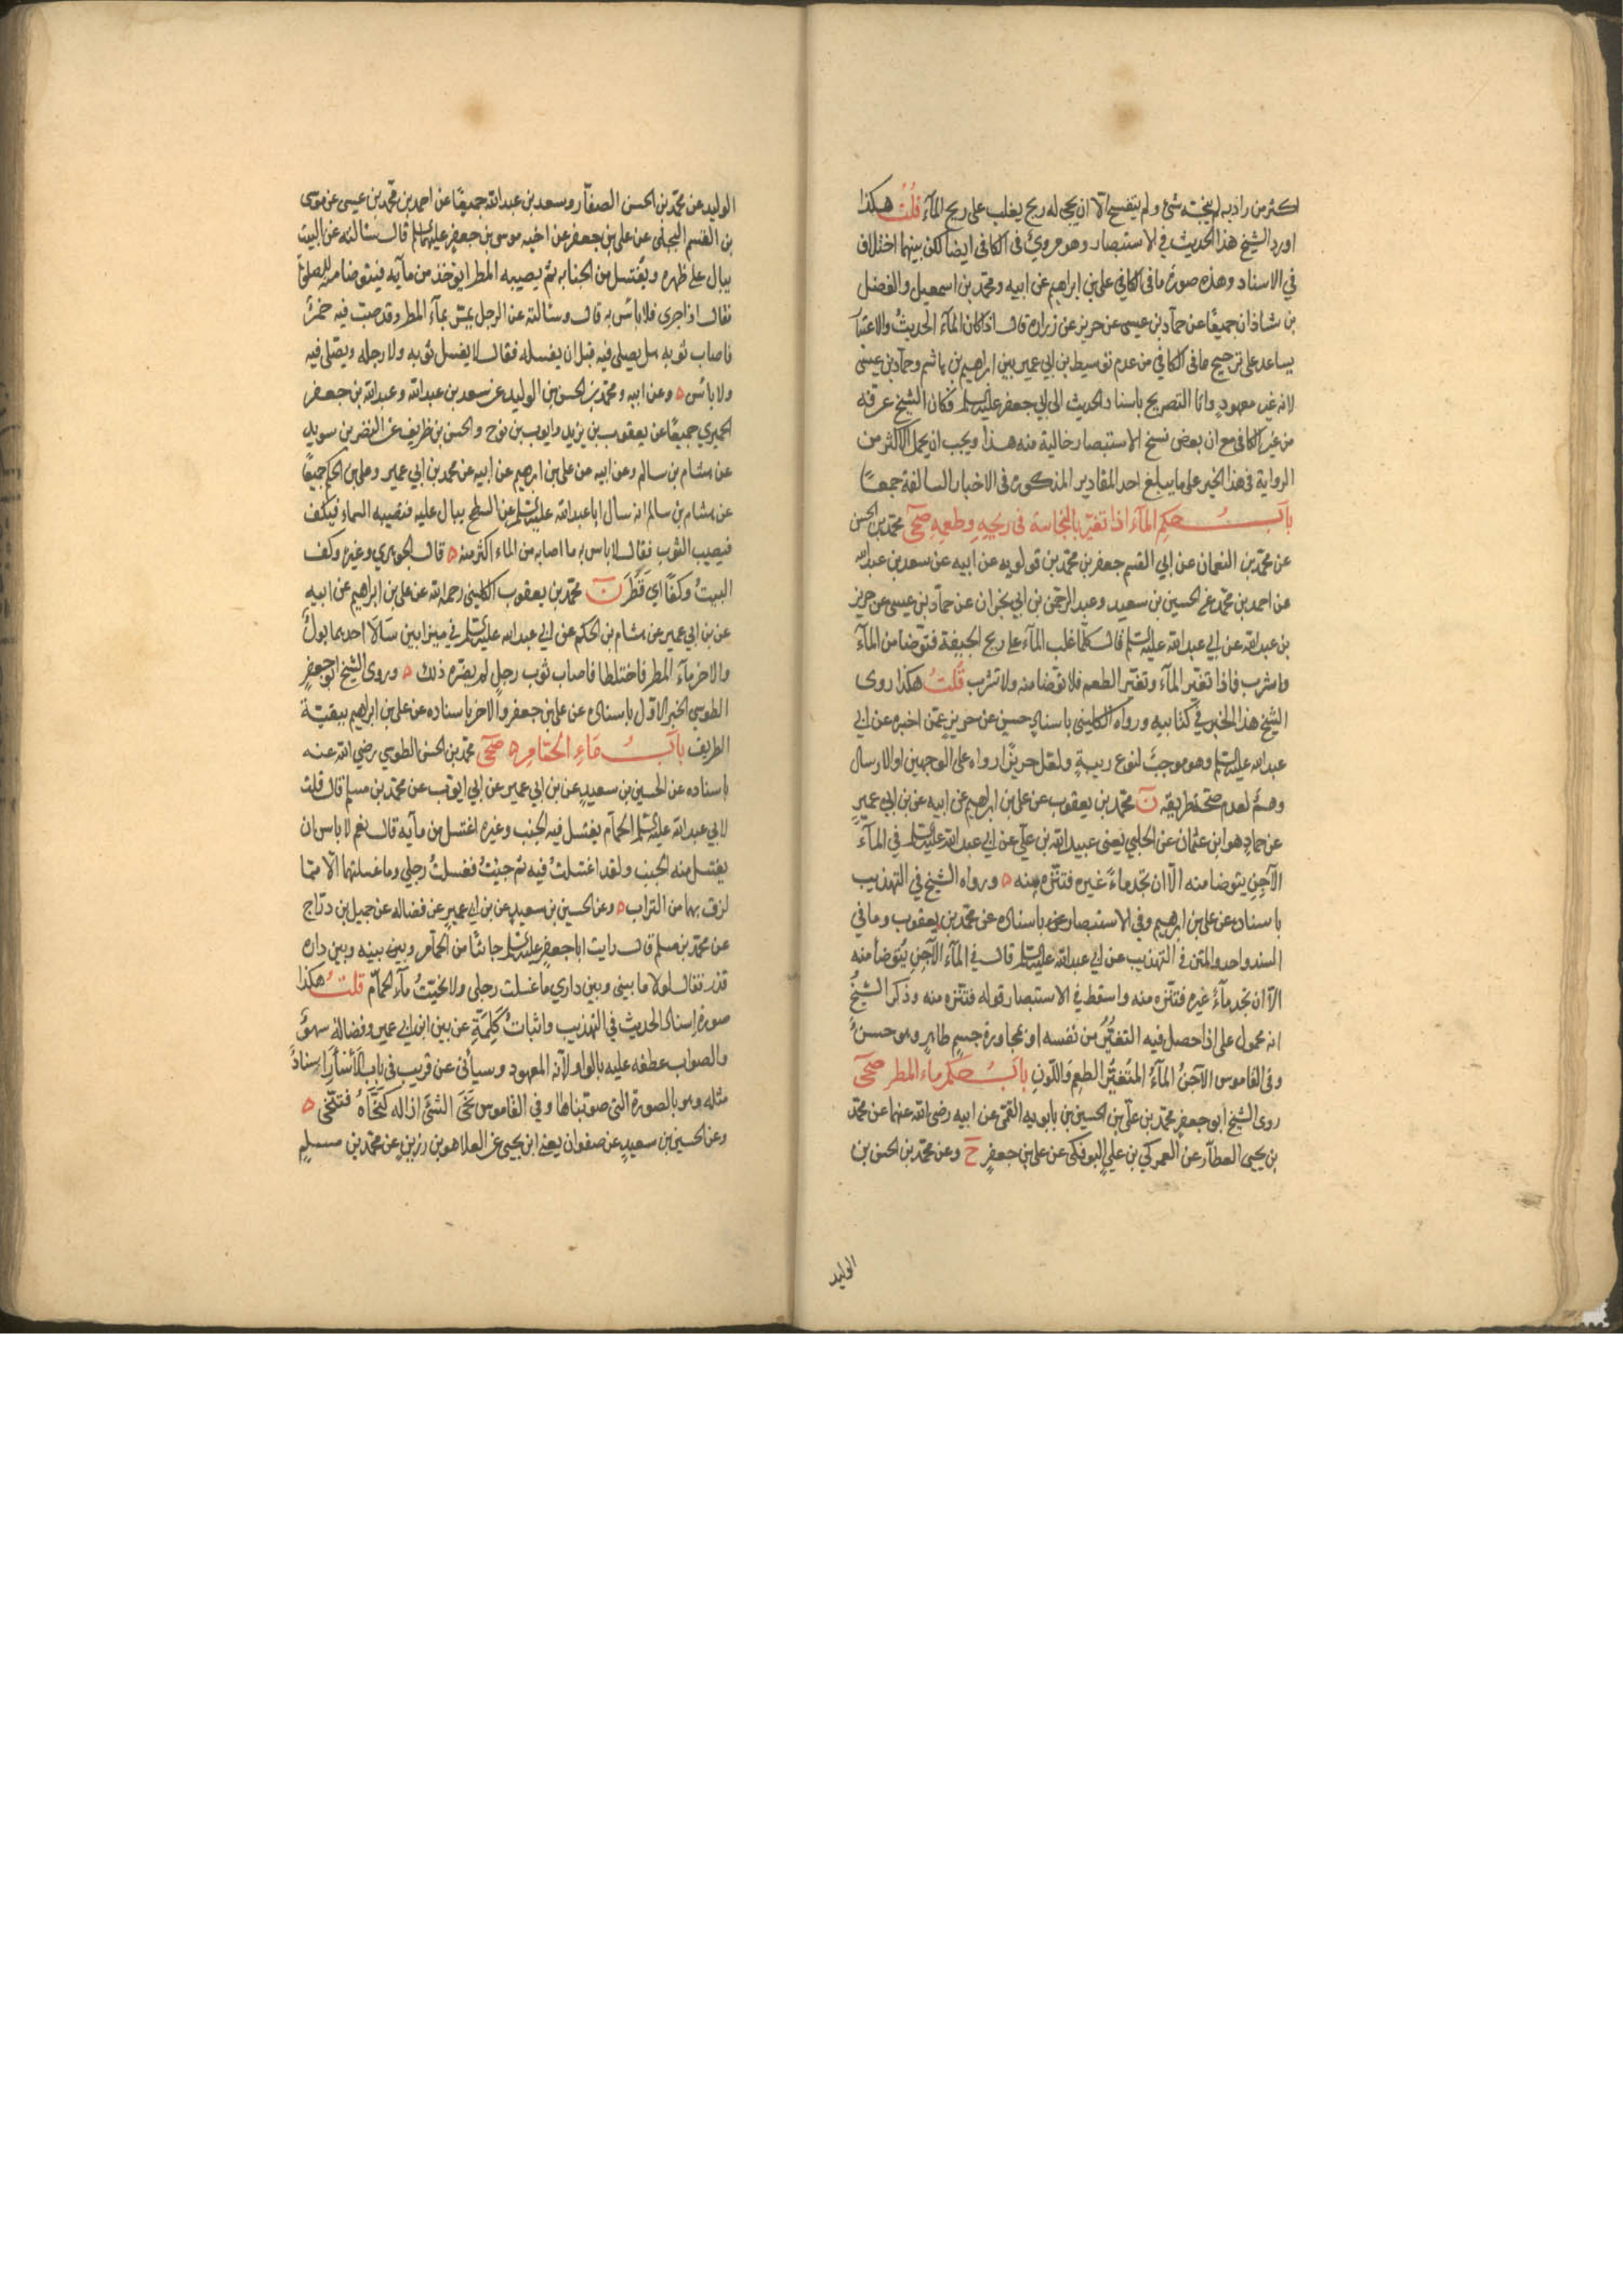 اكثر من راوية لم ينجسه شئ ولم يتفسخ الا ان يجئ له ريح يغلب على ريح المآء قلتُ هكذا
اورد الشيخ هذا الحديث في الاستبصار وهو مروىٌ فى الكافى ايضا لكن بينهما اختلاف
في الاسناد وهذه صورة ما فى الكافي على بن ابراهيم عن ابيه ومحمد بن اسمعيل والفضل
بن شاذان جميعًا عن حمآد بن عيسى عن حريز عن زراره قال اذا كان المآء الحديثُ والاعتبار
يساعد على ترجيح ما فى الكافي من عدم توسيط بن ابي عمير بين ابراهيم بن هاشم وحمآد بن عيسى
لانه غير معهودٍ وامّا التصريح باسناد الحديث الى ابي جعفر عليه السلم فكان الشيخ عرفه
من غير الكافى مع ان بعض نسخ الاستبصار خالية منه هذا ويجب ان يحمل الاكثر من
الرواية فى هذا الخبر على ما يبلغ احد المقادير المذكورة فى الاخبار السالفة جمعـًا
بابُ حكمِ المآء اذا تغيّر بالنجاسة فى ريحِهِ وطعمِهِ صحى محمّد بن الحسن
عن محمّد بن النعمان عن ابي القسم جعفر بن محمّد بن قولويه عن ابيه عن سعد بن عبدالله
عن احمد بن محمّد عن الحسين بن سعيد وعبد الرحمن بن ابي نجران عن حمآد بن عيسى عن حريز
بن عبدالله عن ابي عبدالله عليه السلم قال كلما غلب المآء على ريح الجيفة فتوضا من المآء
واشرب فاذا تغيّر المآء وتغيّر الطعم فلا توضا منه ولا تشرب قلتُ هكذا روى
الشيخ هذا الخبر في كتابيه ورواه الكلينى باسنادٍ حسين عن حريزٍ عمّن اخبره عن ابي
عبدالله عليه السلم وهو موجبٌ لنوع ريبةٍ ولعل حريزًا رواه على الوجهين او الارسال
وهمٌ لعدم صحّة طريقِه نَ محمّد بن يعقوب عن على بن ابراهيم عن ابيه عن بن ابي عميرٍ
عن حمادٍ هو ابن عثمان عن الحلبى يعنى عبيدالله بن علّى عن ابي عبدالله عليه السلم في المآء
الآجِنِ يتوضا منه الّا ان تجد ماءً غيره فتنّزه منه ه ورواه الشيخ في التهذيب
باسناده عن على بن ابرهيم وفي الاستبصار عنه باسناده عن محمّد بن يعقوب وما في
السند واحد والمتن في التهذيب عن ابي عبدالله عليه السلم قال في المآء الآجِنِ يُتوَضأ منه
الّا ان تجد مآءً غيره فتنّزه منه واسقط في الاستبصار قوله فتنّزه منه وذكر الشيخُ
انه محمول على اذا حصل فيه التغيُّرُ من نفسه او بمجاورة جسمٍ طاهرٍ وهو حسنٌ
وفى القاموس الآجنُ المآءُ المتَغيُّر الطعمِ وَاللّونِ بابُ حكم ماء المطر صحى
روى الشيخ ابو جعفرٍ محمّد بن على بن الحسين بن بابويه القمّى عن ابيه رضى الله عنهما عن محمّد
بن يحيى العطآر عن العمركي بن عليٍ البوفكى عن على بن جعفرٍ ح وعن محمّد بن الحسن بن
الوليد
الوليد عن محمّد بن الحسن الصفّار وسعد بن عبدالله جميعًا عن احمد بن محمّد بن عيسى عن موسى
بن القسم البجلى عن على بن جعفر عن اخيه موسى بن جعفرٍ عليه السلم قال سئالته عن البيت
يبال على ظهره ويغتسل من الجنابه ثم يصيبه المطر ايؤخذ من مآئه فيتوضا منه للصلوة
فقال اذا جرى فلا بأس به قال وسئالته عن الرجل يمرّ بمآء المطر وقد صبت فيه خمرٌ
فاصاب ثوبه هل يصلى فيه قبل ان يغسله فقال لا يغسل ثوبه ولا رجله ويصّلى فيه
ولا بأس ه وعن ابيه ومحمّد بن الحسن بن الوليد عن سعد بن عبدالله وعبدالله بن جعفر
الحميري جميعًا عن يعقوب بن يزيد وايوب بن نوح والحسن بن ظريف عن النضر بن سويد
عن هشام بن سالم وعن ابيه عن على بن ابرهيم عن ابيه عن محمد بن ابي عمير وعلى بن الحكم جميعًا
عن هشام بن سالم انه سال اباعبدالله عليه السلم عن السطح يبال عليه فتصيبه السماء فيكف
فيصيب الثوب فقال لا باس به ما اصابه من الماء اكثر منه ه قال الجوهري وغيره وكف
البيتُ وكفًا اي قَطَرَ نَ محمّد بن يعقوب الكلينى رحمه الله عن على بن ابراهيم عن ابيه
عن بن ابي عمير عن هشام بن الحكم عن ابي عبدالله عليه السلم في ميزابين سَالَا احدهما بولٌ
والاخر مآء المطر فاختلطا فاصاب ثوب رجلٍ لم يضره ذلك ه وروى الشيخ ابو جعفرٍ
الطوسى الخبر الاوّل باسناده عن على بن جعفر والاخر باسناده عن على بن ابراهيم ببقيّة
الطريف بابُ مَاءِ الحمّامِ ه صحى محمّد بن الحسن الطوسي رضي الله عنه
باسناده عن الحسين بن سعيدٍ عن بن ابى عمير عن ابى ايوّب عن محمّد بن مسلم قال قلت
لابي عبدالله عليه السلم الحمآم يغتسل فيه الجنب وغيره اغتسل من مآئه قال نعم لا باس ان
يغتسل منه الجنب ولقد اغتسلتُ فيه ثم جئتُ فغسلتُ رجلي وما غسلتهما الّا ممّا
لزق بهما من التراب ه وعن الحسين بن سعيدٍ عن بن ابي عميرٍ عن فضاله عن جميل بن درّاج
عن محمّد بن مسلم قال رايت اباجعفرٍ عليه السلم جائئًا من الحمآم وبين بينه وبين داره
قذر فقال لولا ما بينى وبين داري ما غسلت رجلى ولا نخيّتُ مآء الحمآم قلتُ هكذا
صورة اسناد الحديث في التهذيب واثباتُ كَلِمَةِ عن بين ابن ابى عمير وفضالة سهوٌ
والصواب عطفه عليه بالواو لآنه المعهود وسيأتى عن قريب فى باب الأسْأَر اسنادٌ
مثله وهو بالصورة التى صوّبناها وفي القاموس نَخَى الشئَ ازاله كنخَّاهُ فتنّخى ه
وعن الحسين بن سعيدٍ عن صفوان يعنى ابن يحيى عن العلا هو بن رزينٍ عن محمّد بن مسلمٍ